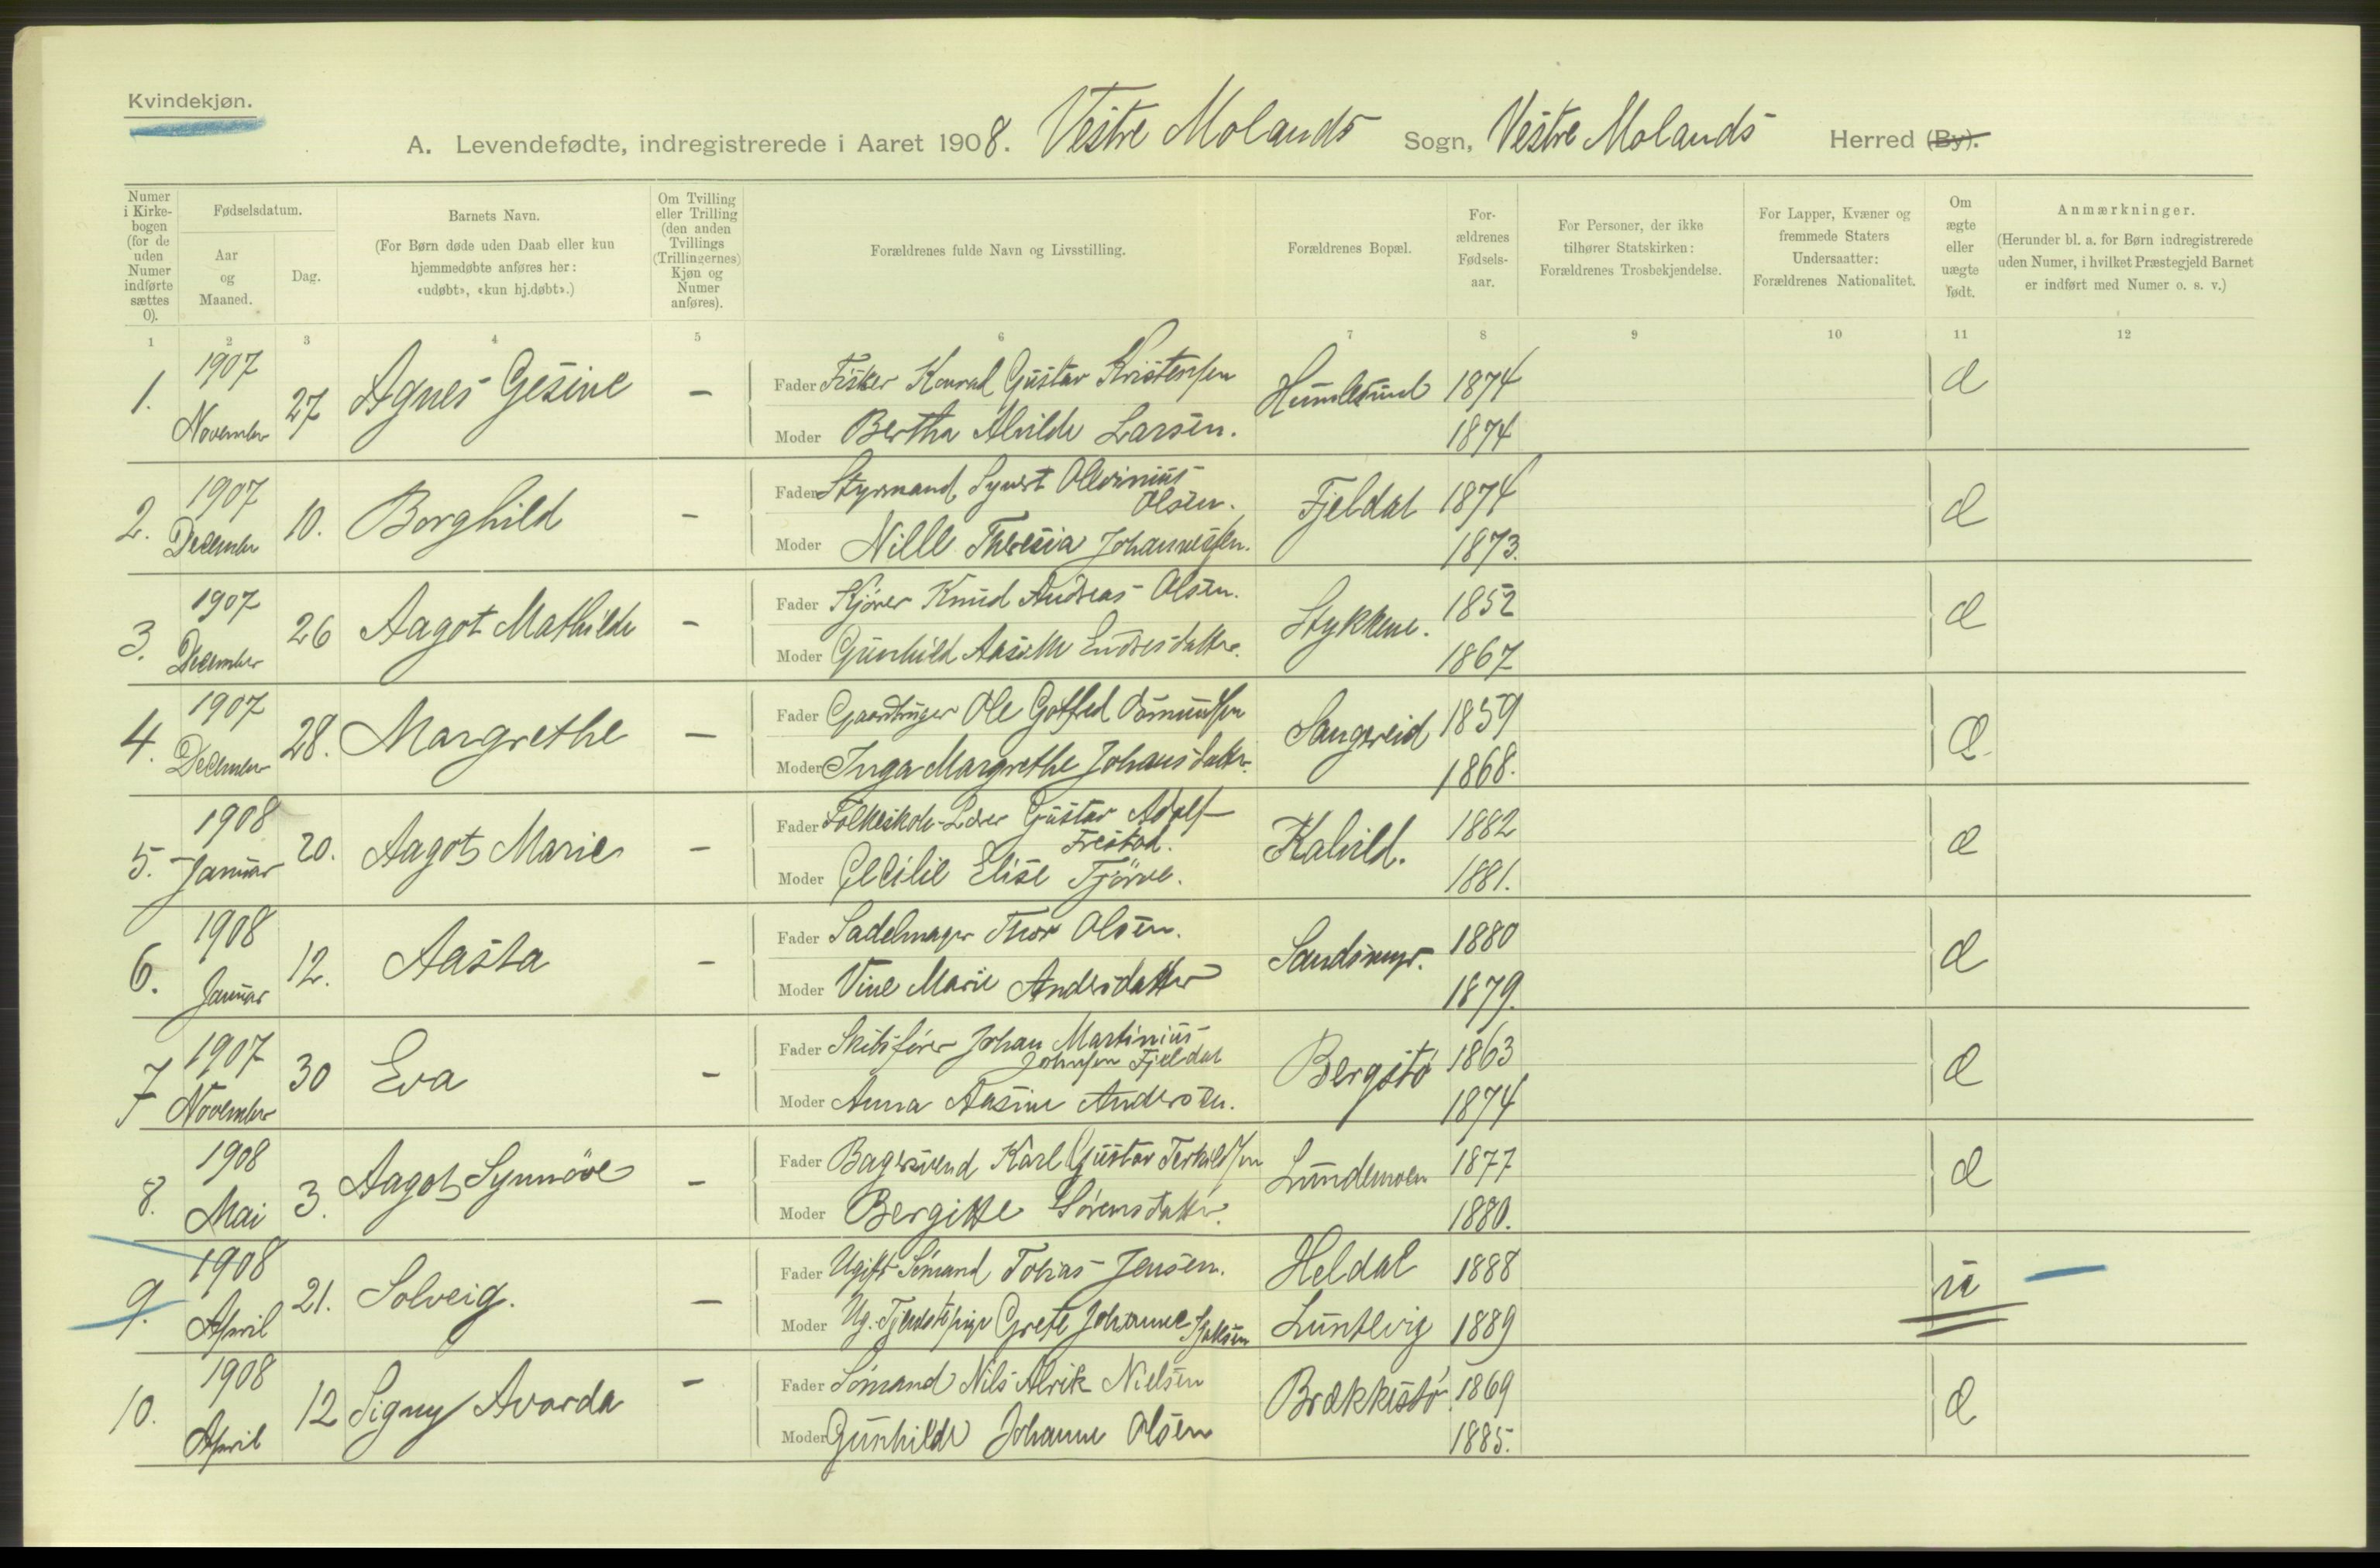 Kvindekjøn.
A. Levendefødte, indregistrerede i Aaret 1908. Vestre Molands Sogn, Vestre Molands Herred (By).
Numer i Kirke-bogen (for de uden Numer indførte sættes 0).
Fødselsdatum.
Aar og Maaned.
Dag.
Barnets Navn.
(For Børn døde uden Daab eller kun hjemmedøbte anføres her: «udøbt», «kun hj.døbt».)
Om Tvilling eller Trilling (den anden Tvillings (Trillingernes) Kjøn og Numer anføres).
Forældrenes fulde Navn og Livsstilling.
Forældrenes Bopæl.
For-ældrenes Fødsels-aar.
For Personer, der ikke tilhører Statskirken: Forældrenes Trosbekjendelse.
For Lapper, Kvæner og fremmede Staters Undersaatter: Forældrenes Nationalitet.
Om ægte eller uægte født.
Anmærkninger.
(Herunder bl. a. for Børn indregistrerede uden Numer, i hvilket Præstegjeld Barnet er indført med Numer o. s. v.)
1 2 3 4 5 6 7 8 9 10 11 12
1. 1907 November 27 Agnes Gesine - Fader Fisker Konrad Gustav Kristensen Humlesund 1874 æ
Moder Bertha Alvilde Larsen. 1874
2. 1907 December 10. Borghild - Fader Styrmand Syvert Olevinius Olsen. Fjeldal 1874 æ
Moder Nille Theresia Johannessen. 1873.
3. 1907 December 26 Aagot Mathilde - Fader Kjører Knud Andreas Olsen. Stykkene. 1852 æ
Moder Gunhild Aasille Endresdatter. 1867
4. 1907 December 28. Margrethe - Fader Gaardbruger Ole Gotfred Osmundsen Sangereid 1859 æ
Moder Inga Margrethe Johansdatter. 1868.
5. 1908 Januar 20. Aagot Marie - Fader Folkeskole-Lærer Gustav Adolf Frestad. Kalvild. 1882 æ
Moder Cecilie Elise Tjörve. 1881.
6. 1908 Januar 12. Aasta - Fader Sadelmager Thor Olsen. Sandsmyr. 1880 æ
Moder Vine Marie Andersdatter 1879.
7 1907 November 30 Eva - Fader Skibsfører Johan Martinius Johnsen Fjeldal Bergstø 1863 æ
Moder Anna Aasine Andersen. 1874
8. 1908 Mai 3. Aagot Synnöve - Fader Bagersvend Karl Gustav Terkildsen Lundemoen 1877 æ
Moder Bergitte Sørensdatter. 1880.
9. 1908 April 21. Solveig. - Fader Ugift Sømand Tobias Jensen. Heldal 1888 u
Moder Ug. Tjenestepige Grete Johanne Luntevig 1889
10. 1908 April 12 Signy Avarda - Fader Sømand Nils Alrik Nielsen Brækkestø. 1869 æ
Moder Gunhilde Johanne Olsen 1885.